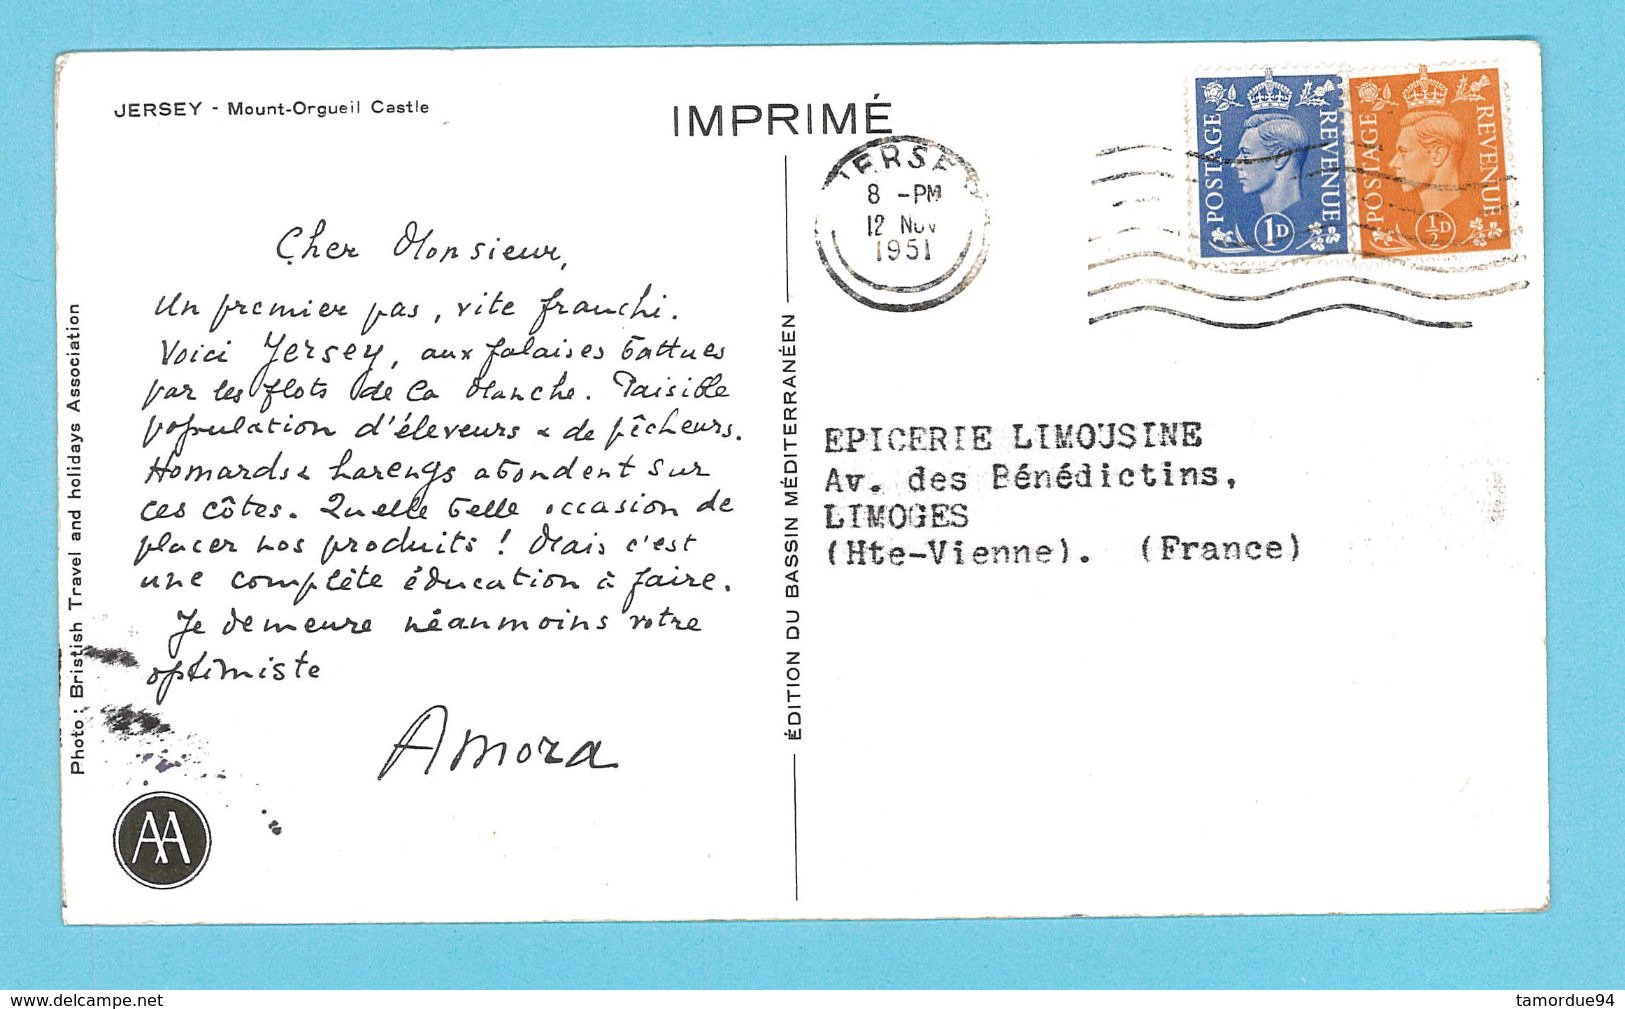 JERSEY - Mount-Orgueil Castle
IMPRIMÉ
JERSEY
8 - PM
12 NOV
1951
POSTAGE REVENUE
1D
POSTAGE REVENUE
½D
Cher Monsieur,
Un premier pas, vite franchi.
Voici Jersey, aux falaises battues
par les flots de la Manche. Paisible
population d'éleveurs & de pêcheurs.
Homards & harengs abondent sur
ces côtes. Quelle belle occasion de
placer nos produits ! Mais c'est
une complète éducation à faire.
Je demeure néanmoins votre
optimiste
Amora
AA
Photo : Bristish Travel and holidays Association
ÉDITION DU BASSIN MÉDITERRANÉEN
EPICERIE LIMOUSINE
Av. des Bénédictins,
LIMOGES
(Hte-Vienne). (France)
delcampe.net
tamordue94